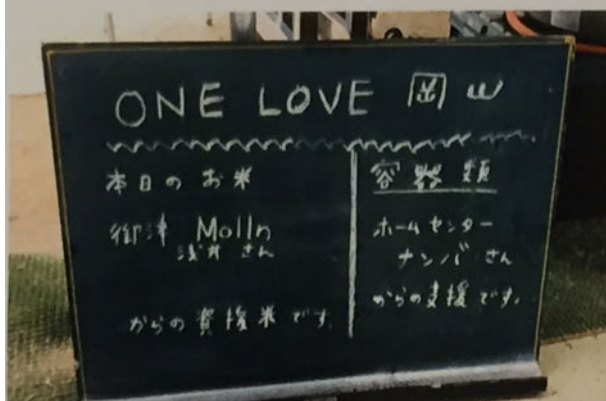 ONE LOVE 岡山
本日のお米
御津 Molln
浅井さん
からの資援米です。
容器類
ホームセンター
ナンバさん
からの支援です。